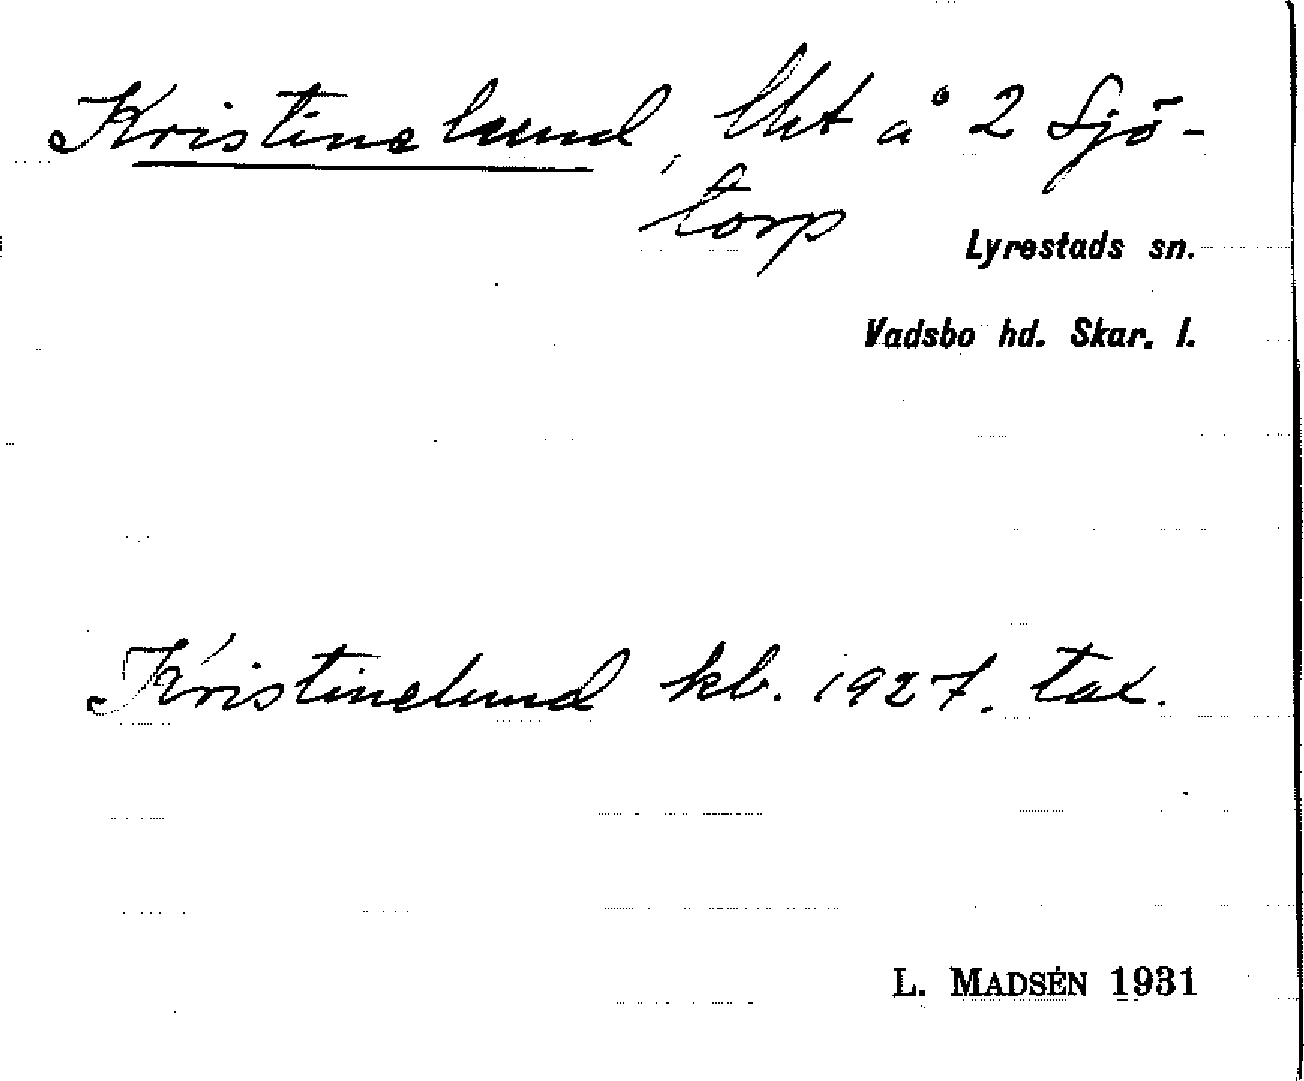 Kristinelund, lht å 2 Sjö-
torp
Lyrestads sn.
Vadsbo hd. Skar. l.
Kristinelund kb. 1927. tax.
L. MADSÉN 1931